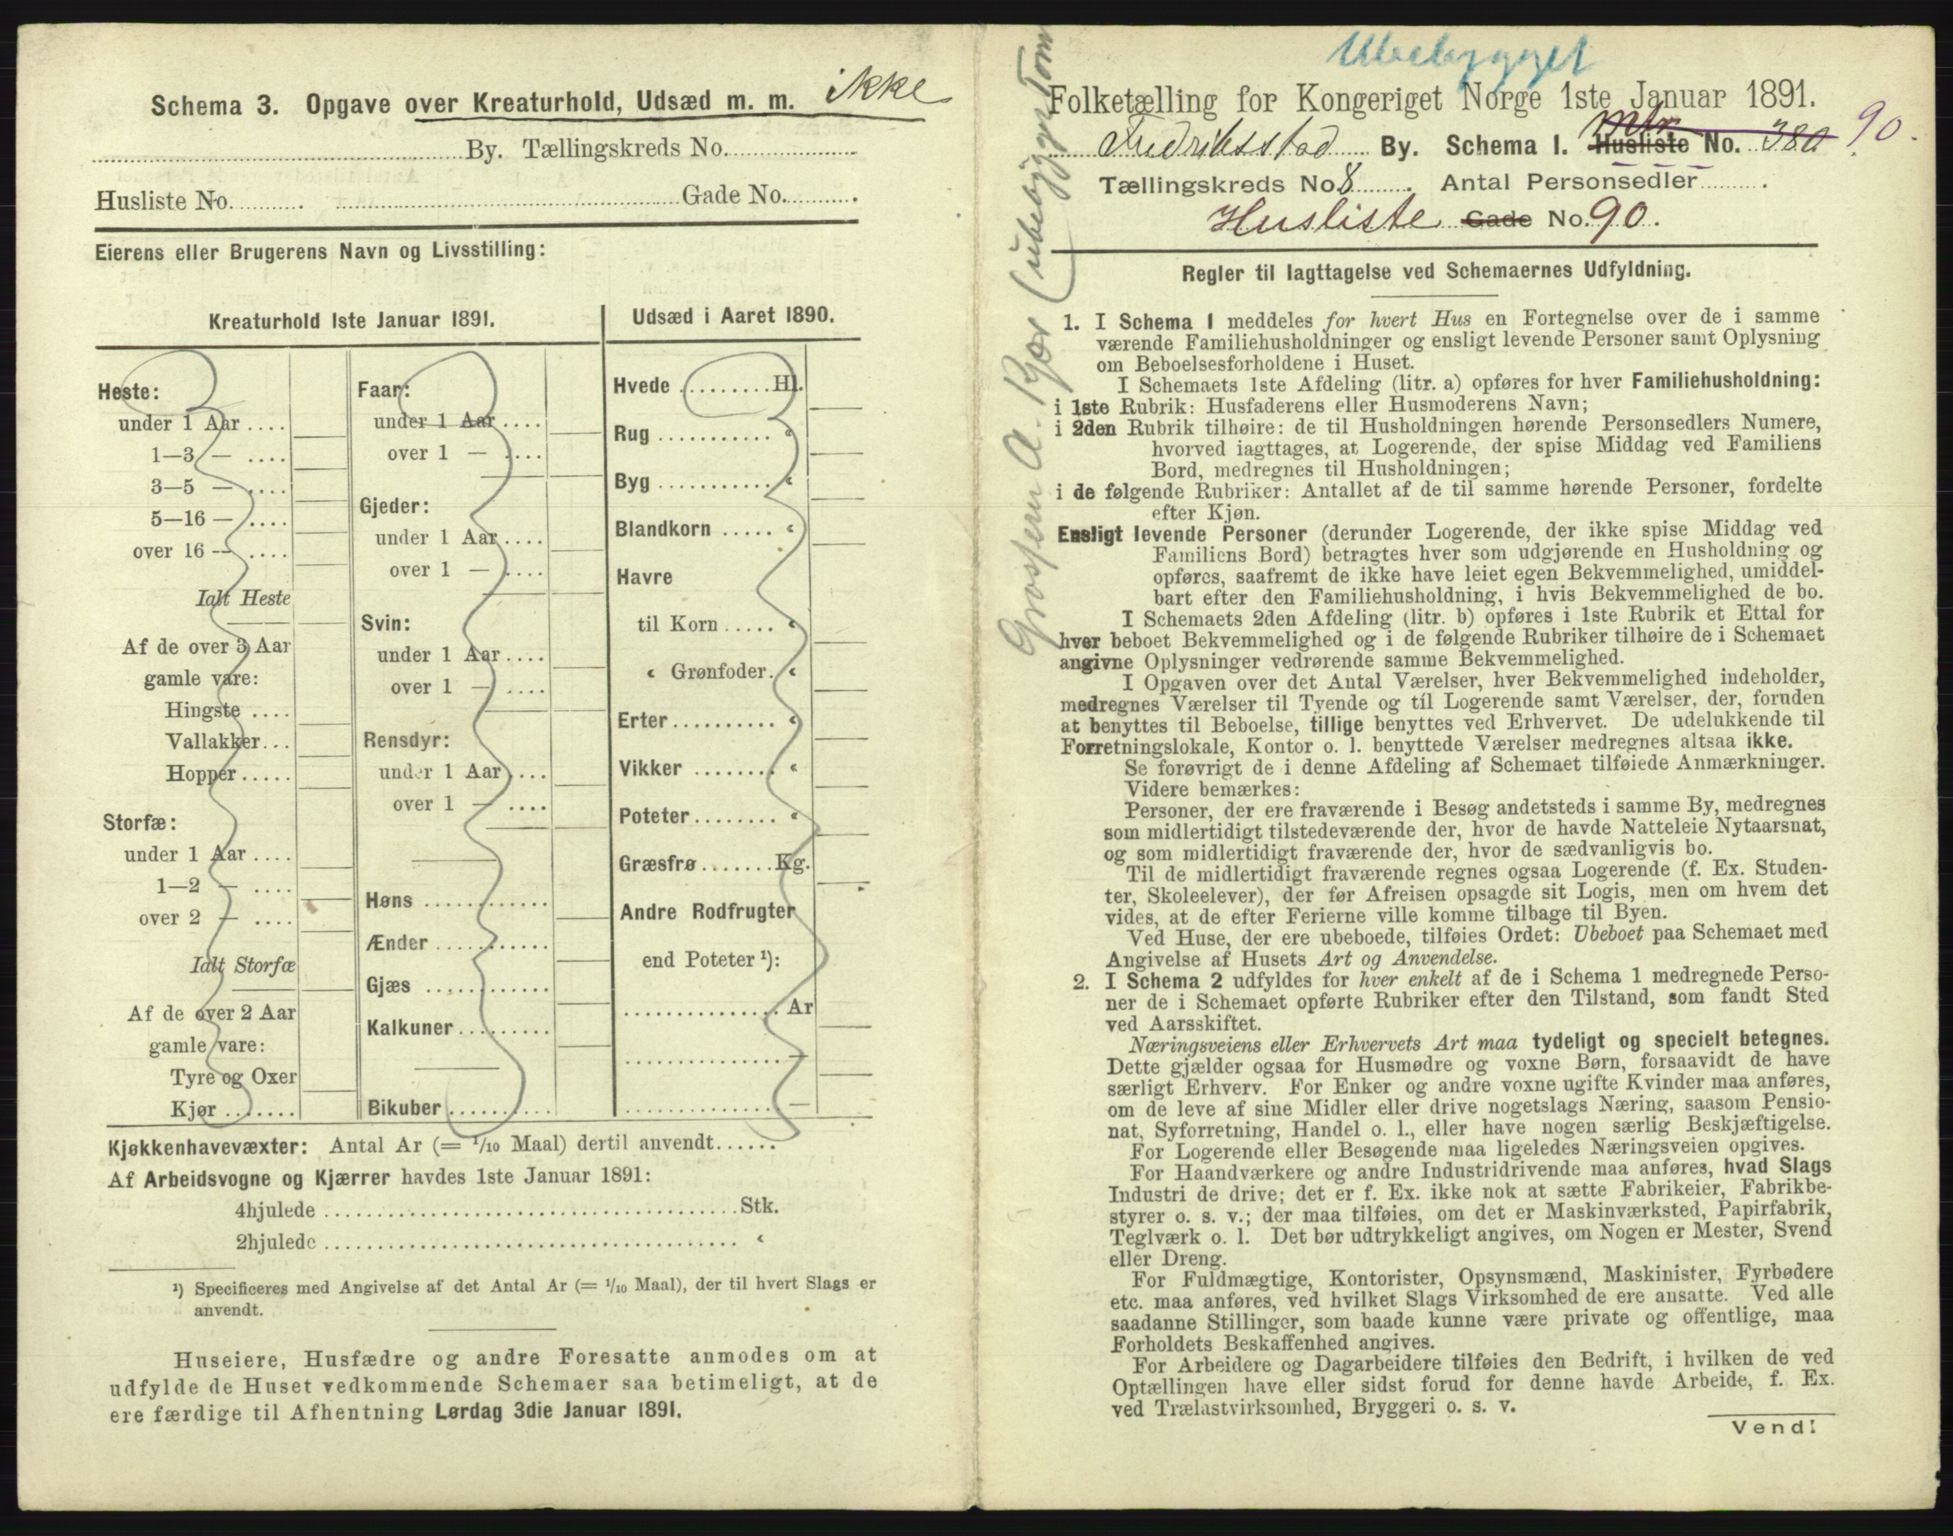 Schema 3. Opgave over Kreaturhold, Udsæd m. m. ikke
By. Tællingskreds No.
Husliste No. Gade No.
Eierens eller Brugerens Navn og Livsstilling:
Kreaturhold 1ste Januar 1891.
Heste:
under 1 Aar
1—3 —
3—5 —
5—16 —
over 16 —
Ialt Heste
Af de over 3 Aar
gamle vare:
Hingste
Vallakker
Hopper
Storfæ:
under 1 Aar
1—2 —
over 2 —
Ialt Storfæ
Af de over 2 Aar
gamle vare:
Tyre og Oxer
Kjør
Faar:
under 1 Aar
over 1 —
Gjeder:
under 1 Aar
over 1 —
Svin:
under 1 Aar
over 1 —
Rensdyr:
under 1 Aar
over 1 —
Høns
Ænder
Gjæs
Kalkuner
Bikuber
Udsæd i Aaret 1890.
Hvede Hl.
Rug "
Byg "
Blandkorn "
Havre
til Korn "
" Grønfoder "
Erter "
Vikker "
Poteter "
Græsfrø Kg.
Andre Rodfrugter
end Poteter ¹):
Ar
—
—
Kjøkkenhavevæxter: Antal Ar (= 1/10 Maal) dertil anvendt
Af Arbeidsvogne og Kjærrer havdes 1ste Januar 1891:
4hjulede Stk.
2hjulede "
¹) Specificeres med Angivelse af det Antal Ar (= 1/10 Maal), der til hvert Slags er
anvendt.
Huseiere, Husfædre og andre Foresatte anmodes om at
udfylde de Huset vedkommende Schemaer saa betimeligt, at de
ere færdige til Afhentning Lørdag 3die Januar 1891.
Grosserer A. Kjær (ubebygget Tomt
Ubebygget
Folketælling for Kongeriget Norge 1ste Januar 1891.
Fredriksstad By. Schema 1. Husliste Mtr. No. 380 90.
Tællingskreds No. 8. Antal Personsedler
Husliste Gade No. 90.
Regler til Iagttagelse ved Schemaernes Udfyldning.
1. I Schema 1 meddeles for hvert Hus en Fortegnelse over de i samme
værende Familiehusholdninger og ensligt levende Personer samt Oplysning
om Beboelsesforholdene i Huset.
I Schemaets 1ste Afdeling (litr. a) opføres for hver Familiehusholdning:
i 1ste Rubrik: Husfaderens eller Husmoderens Navn;
i 2den Rubrik tilhøire: de til Husholdningen hørende Personsedlers Numere,
hvorved iagttages, at Logerende, der spise Middag ved Familiens
Bord, medregnes til Husholdningen;
i de følgende Rubriker: Antallet af de til samme hørende Personer, fordelte
efter Kjøn.
Ensligt levende Personer (derunder Logerende, der ikke spise Middag ved
Familiens Bord) betragtes hver som udgjørende en Husholdning og
opføres, saafremt de ikke have leiet egen Bekvemmelighed, umiddel-
bart efter den Familiehusholdning, i hvis Bekvemmelighed de bo.
I Schemaets 2den Afdeling (litr. b) opføres i 1ste Rubrik et Ettal for
hver beboet Bekvemmelighed og i de følgende Rubriker tilhøire de i Schemaet
angivne Oplysninger vedrørende samme Bekvemmelighed.
I Opgaven over det Antal Værelser, hver Bekvemmelighed indeholder,
medregnes Værelser til Tyende og til Logerende samt Værelser, der, foruden
at benyttes til Beboelse, tillige benyttes ved Erhvervet. De udelukkende til
Forretningslokale, Kontor o. l. benyttede Værelser medregnes altsaa ikke.
Se forøvrigt de i denne Afdeling af Schemaet tilføiede Anmærkninger.
Videre bemærkes:
Personer, der ere fraværende i Besøg andetsteds i samme By, medregnes
som midlertidigt tilstedeværende der, hvor de havde Natteleie Nytaarsnat,
og som midlertidigt fraværende der, hvor de sædvanligvis bo.
Til de midlertidigt fraværende regnes ogsaa Logerende (f. Ex. Studen-
ter, Skoleelever), der før Afreisen opsagde sit Logis, men om hvem det
vides, at de efter Ferierne ville komme tilbage til Byen.
Ved Huse, der ere ubeboede, tilføies Ordet: Ubeboet paa Schemaet med
Angivelse af Husets Art og Anvendelse.
2. I Schema 2 udfyldes for hver enkelt af de i Schema 1 medregnede Perso-
ner de i Schemaet opførte Rubriker efter den Tilstand, som fandt Sted
ved Aarsskiftet.
Næringsveiens eller Erhvervets Art maa tydeligt og specielt betegnes.
Dette gjælder ogsaa for Husmødre og voxne Børn, forsaavidt de have
særligt Erhverv. For Enker og andre voxne ugifte Kvinder maa anføres,
om de leve af sine Midler eller drive nogetslags Næring, saasom Pensio-
nat, Syforretning, Handel o. l., eller have nogen særlig Beskjæftigelse.
For Logerende eller Besøgende maa ligeledes Næringsveien opgives.
For Haandværkere og andre Industridrivende maa anføres, hvad Slags
Industri de drive; det er f. Ex. ikke nok at sætte Fabrikeier, Fabrikbe-
styrer o. s. v.; der maa tilføies, om det er Maskinværksted, Papirfabrik,
Teglværk o. l. Det bør udtrykkeligt angives, om Nogen er Mester, Svend
eller Dreng.
For Fuldmægtige, Kontorister, Opsynsmænd, Maskinister, Fyrbødere
etc. maa anføres, ved hvilket Slags Virksomhed de ere ansatte. Ved alle
saadanne Stillinger, som baade kunne være private og offentlige, maa
Forholdets Beskaffenhed angives.
For Arbeidere og Dagarbeidere tilføies den Bedrift, i hvilken de ved
Optællingen have eller sidst forud for denne havde Arbeide, f. Ex.
ved Trælastvirksomhed, Bryggeri o. s. v.
Vend!